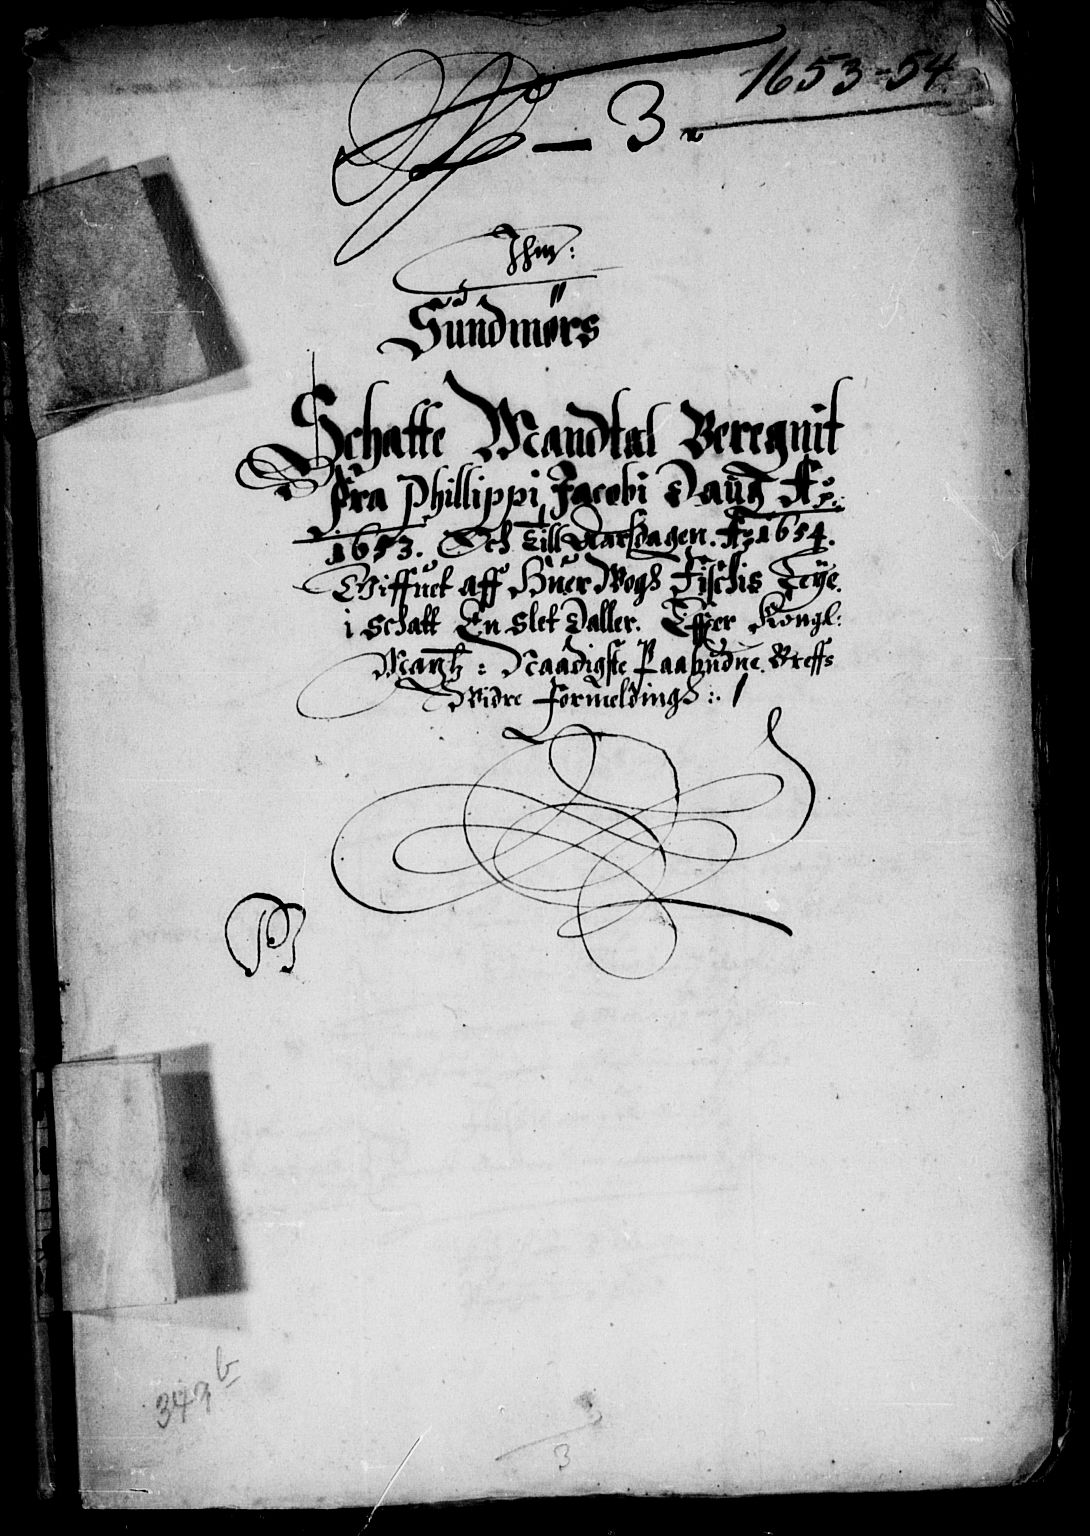 1653-54
N - 3.
Jhm:
Sundmørs
Schatte Mandtal Beregnit
fra Phillippi Jacobi Daug Ao:
1653. Och Till Aarsdagen. Ao 1654.
Giffuet aff Huer Wogh Fischis Leye
i schatt En slet Daller. Effter Kongl:
Maytz: Naadigste Paabudne Breffs
Widre formeldingh :. /
B
343 b
3